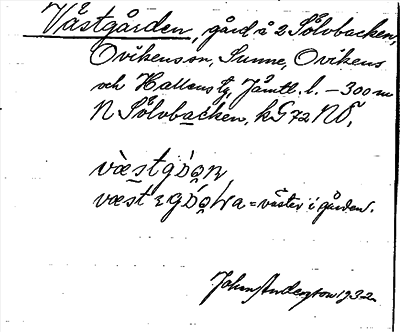 Västgården, gård å 2 Sölvbacken,
Ovikens sn, Sunne, Ovikens
och Hallens tg, Jämtl. l. – 300 m
N Sölvbacken, kG 72 NO,
væstgɷ̀ɷn
væst ɛgɷ́ɷɳa = väster i gården.
John Anderzon 1932